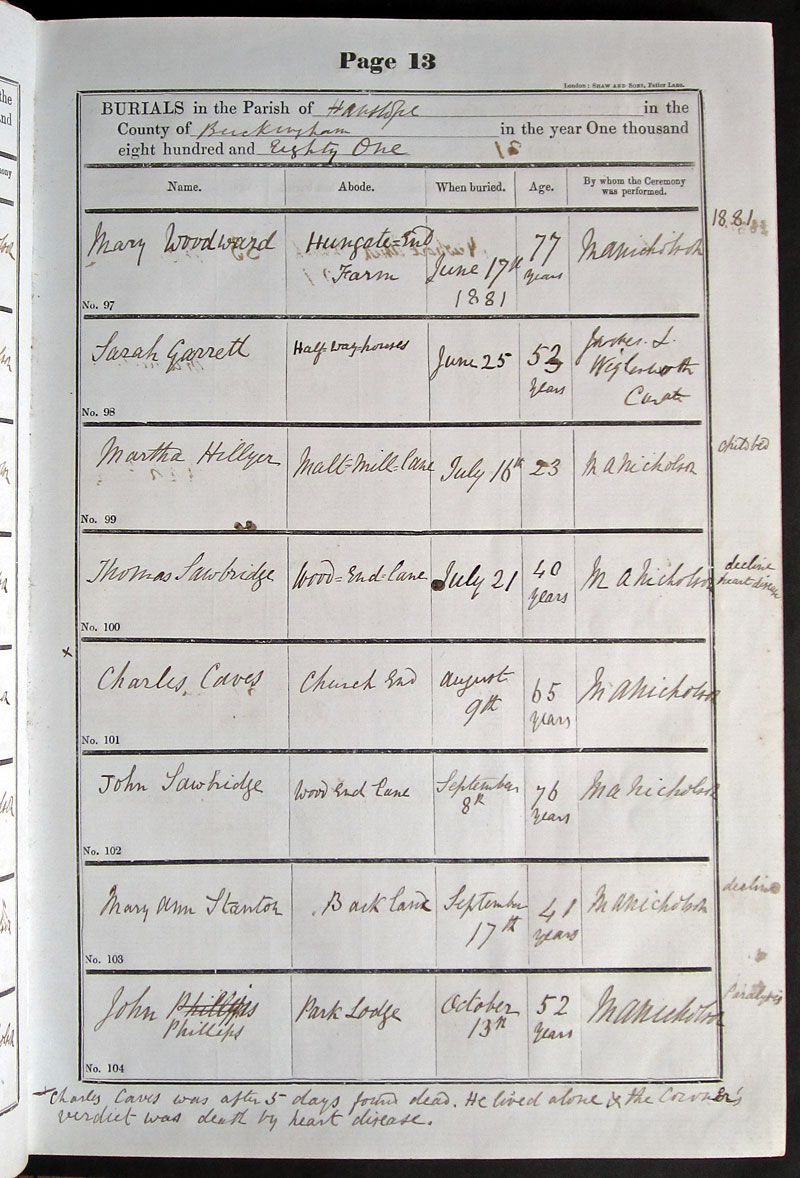 Page 13
London: SHAW AND SONS, Fetter Lane.
BURIALS in the Parish of Hanslope in the
County of Buckingham in the year One thousand
eight hundred and Eighty One
Name. Abode. When buried. Age. By whom the Ceremony was performed.
1881
Mary Woodward Hungate=End Farm June 17th 1881 77 years M A Nicholson
No. 97
Sarah Garrett Half-way-houses June 25 52 years James L Wiglesworth Curate
No. 98
Martha Hillyer Malt=Mill=Lane July 16th 23 M A Nicholson childbed
No. 99
Thomas Sawbridge Wood=End=Lane July 21 40 years M A Nicholson decline heart disease
No. 100
x
Charles Caves Church End August 9th 65 years M A Nicholson
No. 101
John Sawbridge Wood End Lane September 8th 76 years M A Nicholson
No. 102
Mary Ann Stanton Back Lane September 17th 41 years M A Nicholson decline
No. 103
John Phillips Phillips Park Lodge October 13th 52 years M A Nicholson Paralysis
No. 104
x Charles Caves was after 5 days found dead. He lived alone & the Coroner's
verdict was death by heart disease.